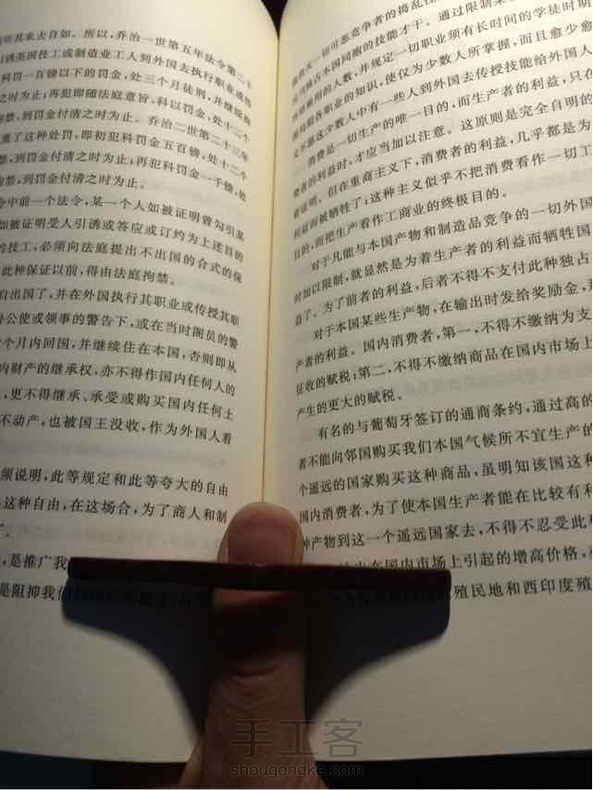 听其来去自如。所以，乔治一世第五年法令第二十
诱英国技工或制造业工人到外国去执行职业或传
科罚一百镑以下的罚金，处三个月徒刑，并继续拘
之时为止；再犯即随法庭意旨，科以罚金，处十二个
到罚金付清之时为止。乔治二世第二十三年
重了这种处罚，即初犯科罚金五百镑，处十二个
，到罚金付清之时为止；再犯科罚金一千镑，处
禁，到罚金付清之时为止。
令中前一个法令，某一个人如被证明曾勾引某
如被证明受人引诱或答应或订约为上述目的
的技工，必须向法庭提出不出国的合式的保
此种保证以前，得由法庭拘禁。
自出国了，并在外国执行其职业或传授其职
公使或领事的警告下，或在当时阁员的警告
个月内回国，并继续住在本国，否则即从
内财产的继承权，亦不得作国内任何人的
，更不得继承、承受或购买国内任何土
不动产，也被国王没收，作为外国人看
须说明，此等规定和此等夸大的自由
这种自由，在这场合，为了商人和制
了。
，是推广我
是阻抑我们
一切可恶竞争者的捣乱
独占本国同胞的技能才干。通过限制某
所雇用的人数，并规定一切职业须有长时间的学徒时期
局限各职业的知识，使仅为少数人所掌握，而且愈少愈
又不愿这少数人中有一些人到外国去传授技能给外国人
消费是一切生产的唯一目的，而生产者的利益，只在
费者的利益时，才应当加以注意。这原则是完全自明的
着证明。但在重商主义下，消费者的利益，几乎都是为
利益而被牺牲了；这种主义似乎不把消费看作一切工
目的，而把生产看作工商业的终极目的。
对于凡能与本国产物和制造品竞争的一切外国
时加以限制，就显然是为着生产者的利益而牺牲国
益了。为了前者的利益，后者不得不支付此种独占
对于本国某些生产物，在输出时发给奖励金，
产者的利益。国内消费者，第一，不得不缴纳为支
征收的赋税；第二，不得不缴纳商品在国内市场上
产生的更大的赋税。
有名的与葡萄牙签订的通商条约，通过高的
者不能向邻国购买我们本国气候所不宜生产的
个遥远的国家购买这种商品，虽明知该国这种
国内消费者，为了使本国生产者能在比较有利
种产物到这一个遥远国家去，不得不忍受此
在国内市场上引起的增高价格，
殖民地和西印度殖
手工客
shougongke.com